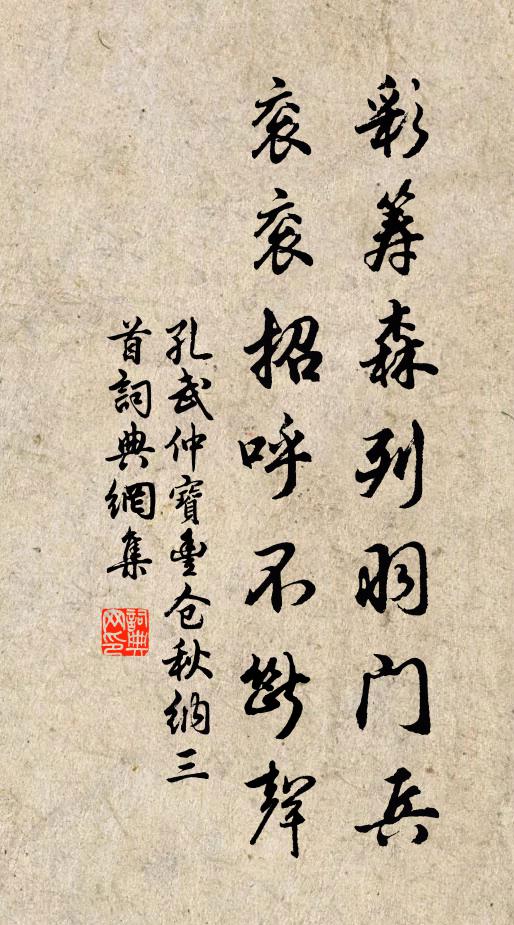 彩筹森列羽门兵
衮衮招呼不断声
孔武仲寶豊仓秋纳三
首詞典網集
詞典
网印